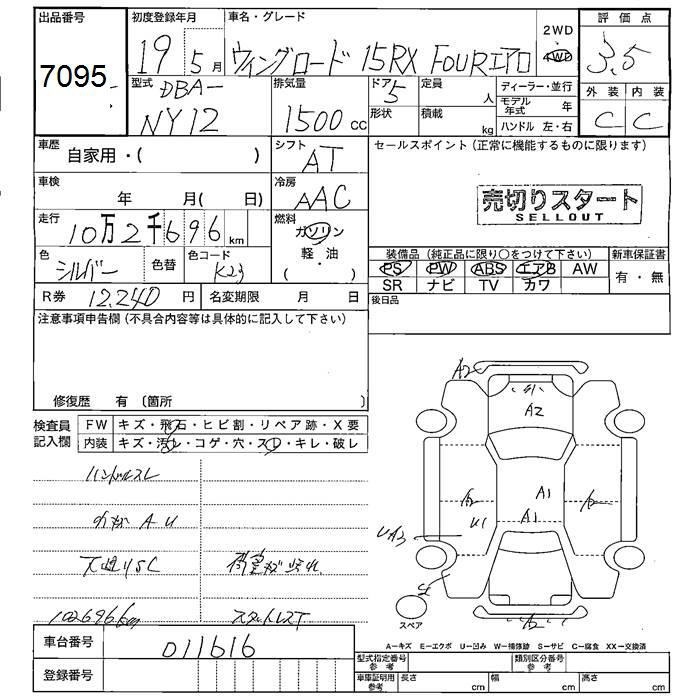 出品番号 初度登録年月 車名・グレード 2WD 4WD 評価点
7095 19 5月 ウイングロード 15RX FOURエアロ 3.5
型式 排気量 ドア 定員 ディーラー・並行 外装 内装
DBA- 5 人 モデル年式 年
NY12 1500cc 形状 積載 kg ハンドル 左・右 C C
車歴 自家用・( ) シフト AT セールスポイント(正常に機能するものに限ります)
車検 年 月( 日) 冷房 AAC
売切りスタート
SELLOUT
走行 10万2千696km 燃料 ガソリン・軽・油( )
色 シルバー 色替 色コード K23
装備品(純正品に限り○をつけて下さい) 新車保証書
PS PW ABS エアB AW 有・無
SR ナビ TV カワ
R券 12,240円 名変期限 月 日 後日品
注意事項申告欄(不具合内容等は具体的に記入して下さい)
修復歴 有(箇所 )
検査員記入欄 FW キズ・飛石・ヒビ割・リペア跡・X要
内装 キズ・汚れ・コゲ・穴・スレ・キレ・破レ
ハンドルスレ
AU
下廻りSC
102696km
車台番号 011616
登録番号
A2
A2
A1
A1
U1
A2
A2
A2
スペア
A=キズ E=エクボ U=凹み W=補修跡 S=サビ C=腐食 XX=交換済
型式指定番号参考 類別区分番号参考
車庫証明用参考 長さ cm 幅 cm 高さ cm